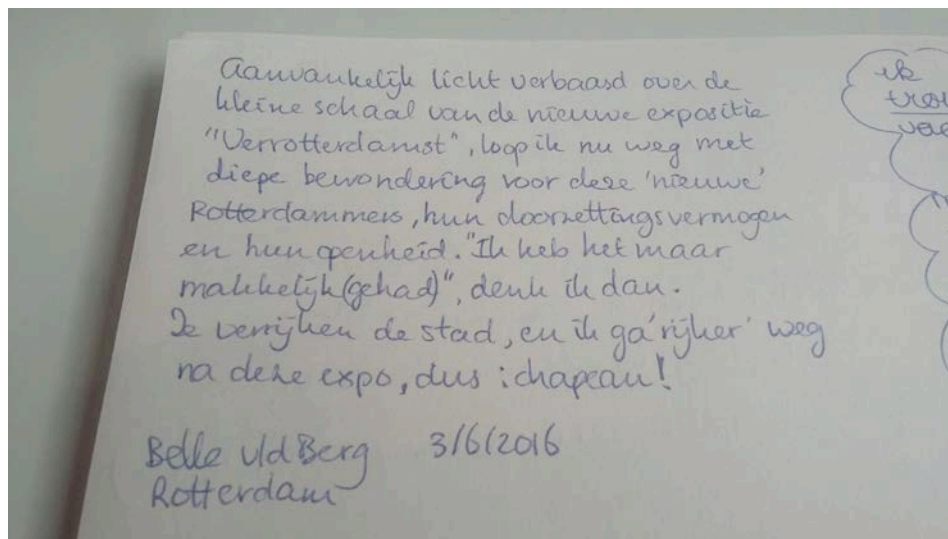 Aanvankelijk licht verbaasd over de
kleine schaal van de nieuwe expositie
"Verrotterdamst", loop ik nu weg met
diepe bewondering voor deze 'nieuwe'
Rotterdammers, hun doorzettingsvermogen
en hun openheid. "Ik heb het maar
makkelijk (gehad)", denk ik dan.
Ze verrijken de stad, en ik ga 'rijker' weg
na deze expo, dus : chapeau!
Belle v/d Berg 3/6/2016
Rotterdam
ik